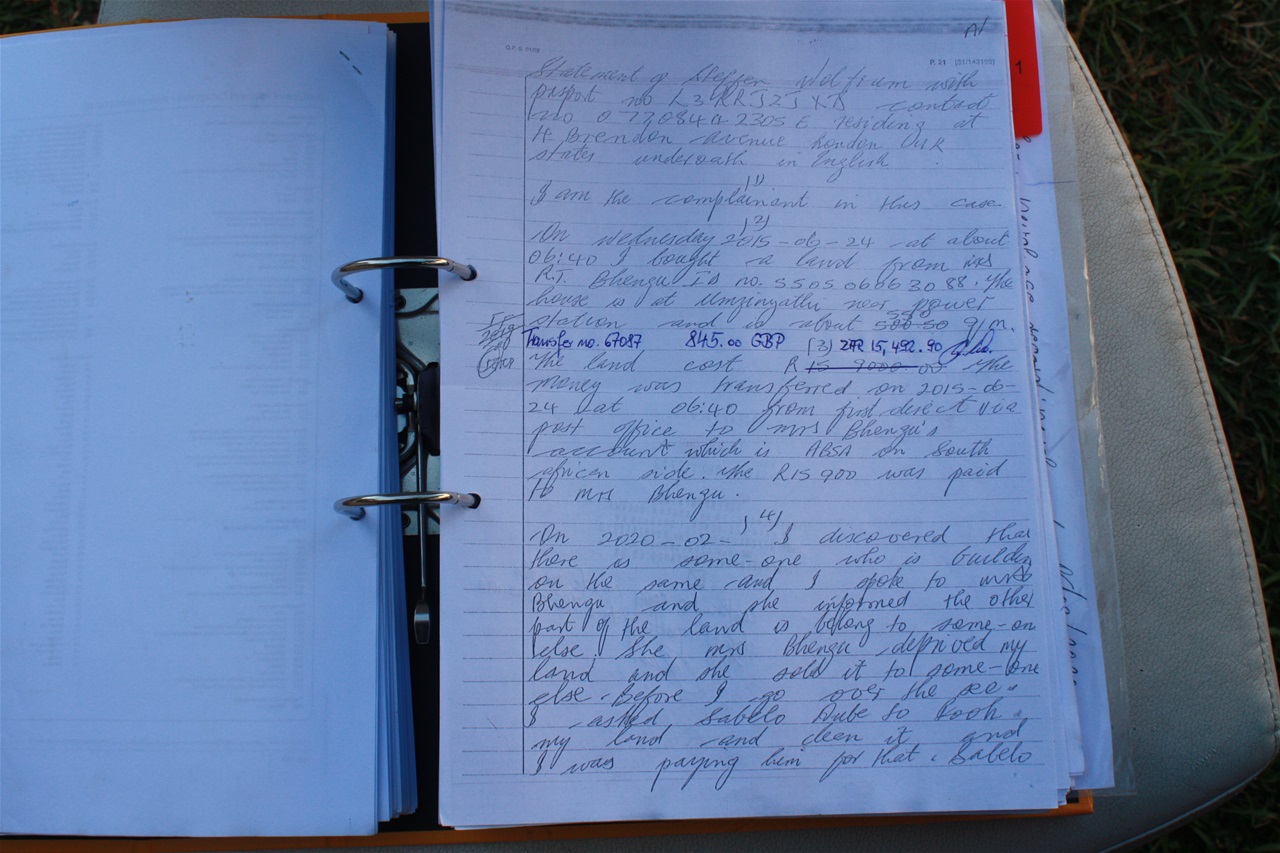 A/
G.P.S. 01/09
P. 21 (81/143199)
1
Statement of Steffen with
pasport no contact
no 0 residing at
4 Brendon avenue London
states underoath in English
1)
I am the complainant in this case
2)
On wednesday 2015-06-24 at about
06:40 I bought a land from mrs
R.T. Bhengu ID no. 5505 0606 30 88. The
house is at Umzinyathi near power
station and is about 500 50 q/m.
Transfer no. 67087 845.00 GBP (3) ZAR 15,492.90
The land cost R 15 9000 00 The
money was transferred on 2015-06-
24 at 06:40 from first direct via
post office to mrs Bhengu's
account which is ABSA on South
african side. The R15 900 was paid
to mrs Bhengu.
4)
On 2020-02- I discovered that
there is some-one who is building
on the same and I spoke to mrs
Bhengu and she informed the other
part of the land is belong to some-on
else. She mrs Bhengu deprived my
land and she sold it to some-one
else. Before I go over the see.
I asked Sabelo Dube to look
my land and clean it and
I was paying him for that. Sabelo